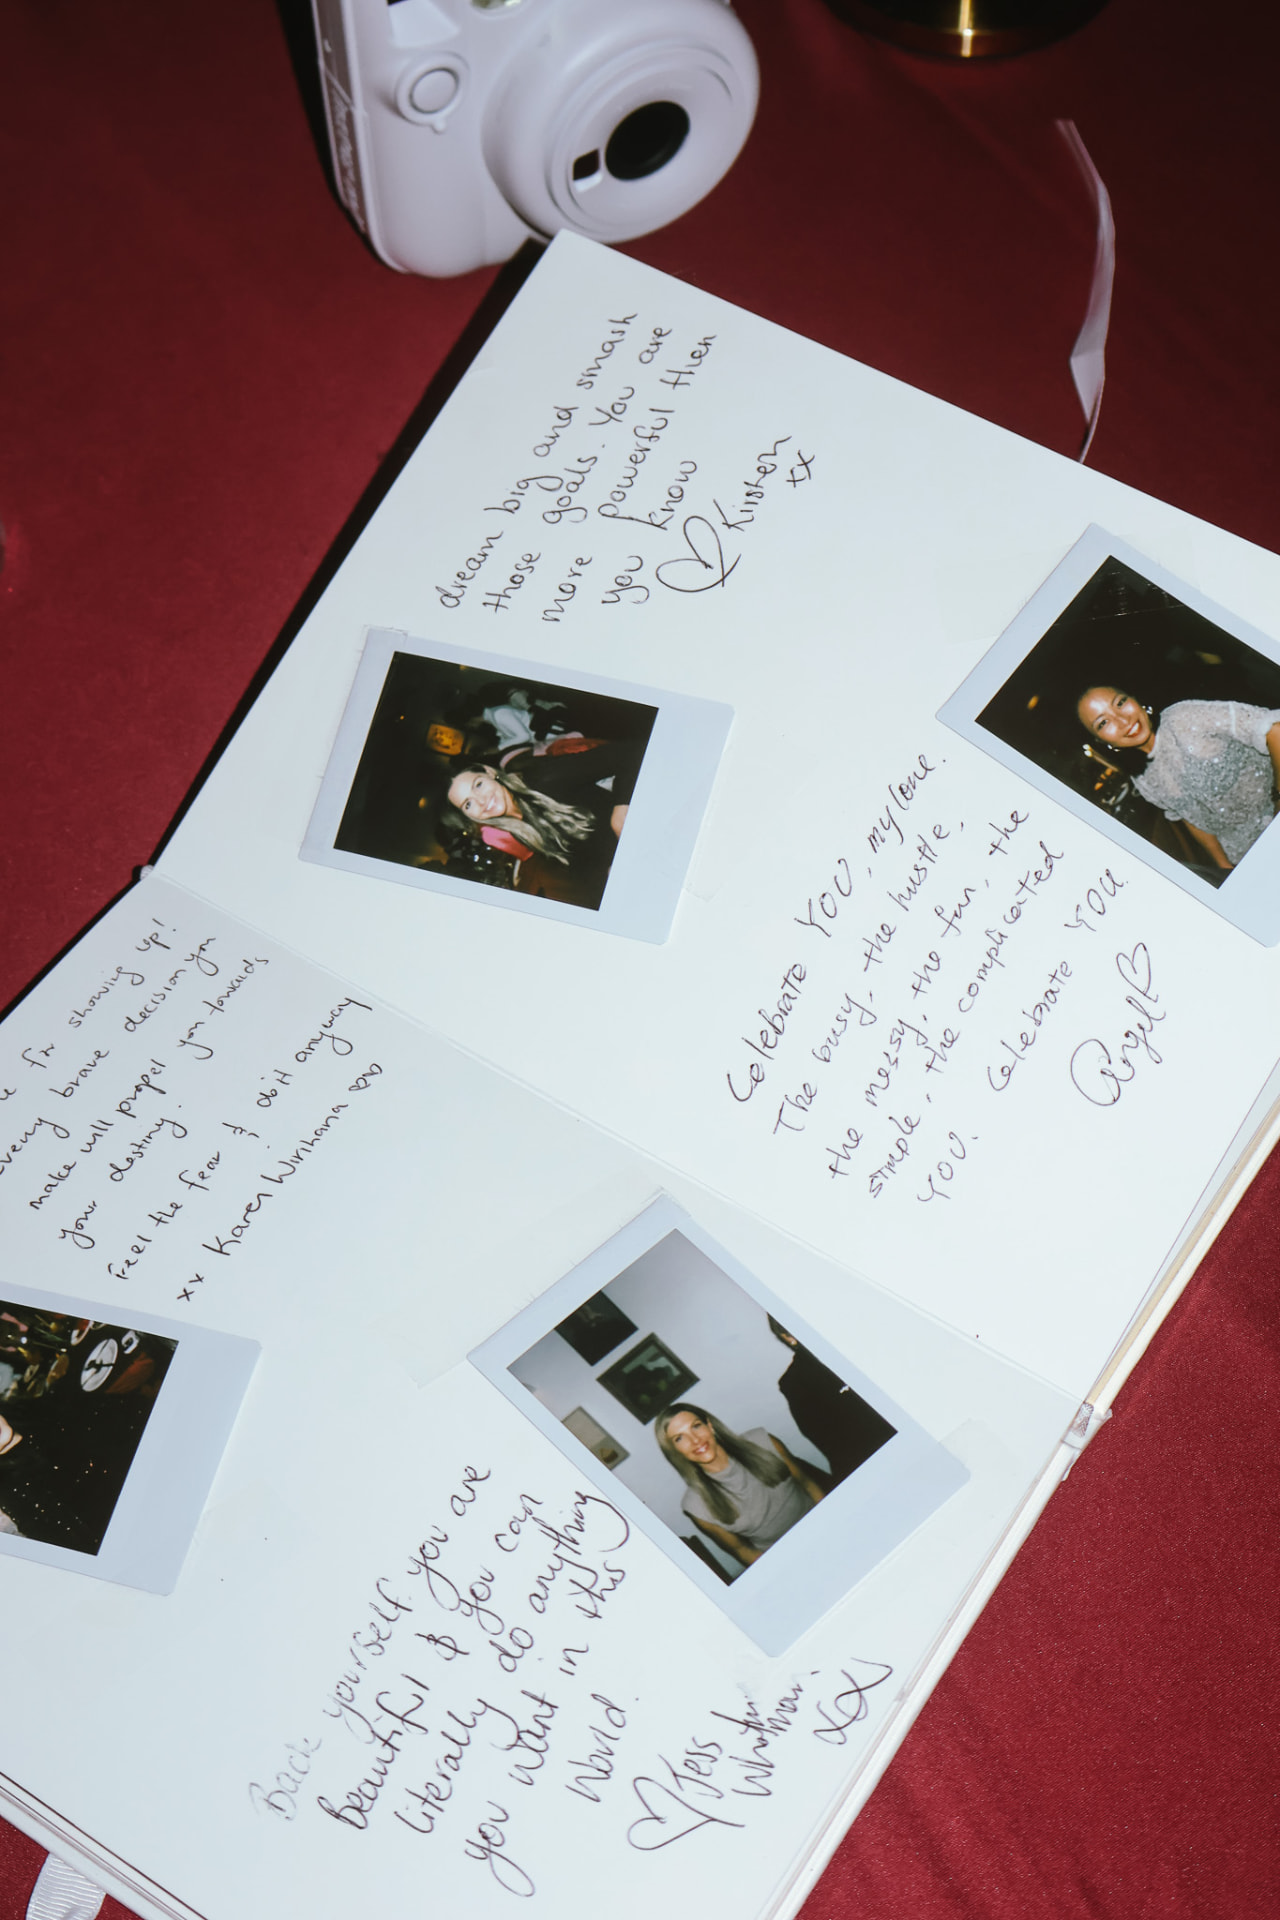 dream big and smash
those goals. You are
more powerful then
you know
Kirsten
xx
Celebrate YOU, my love.
The busy, the hustle,
the messy, the fun, the
simple, the complicated
YOU. Celebrate YOU.
Angel
for showing up!
every brave decision you
make will propel you towards
your destiny.
Feel the fear & do it anyway
xx Karen Wirihana
Back yourself. you are
Beautiful & you can
literally do anything
you want in this
World.
Jess